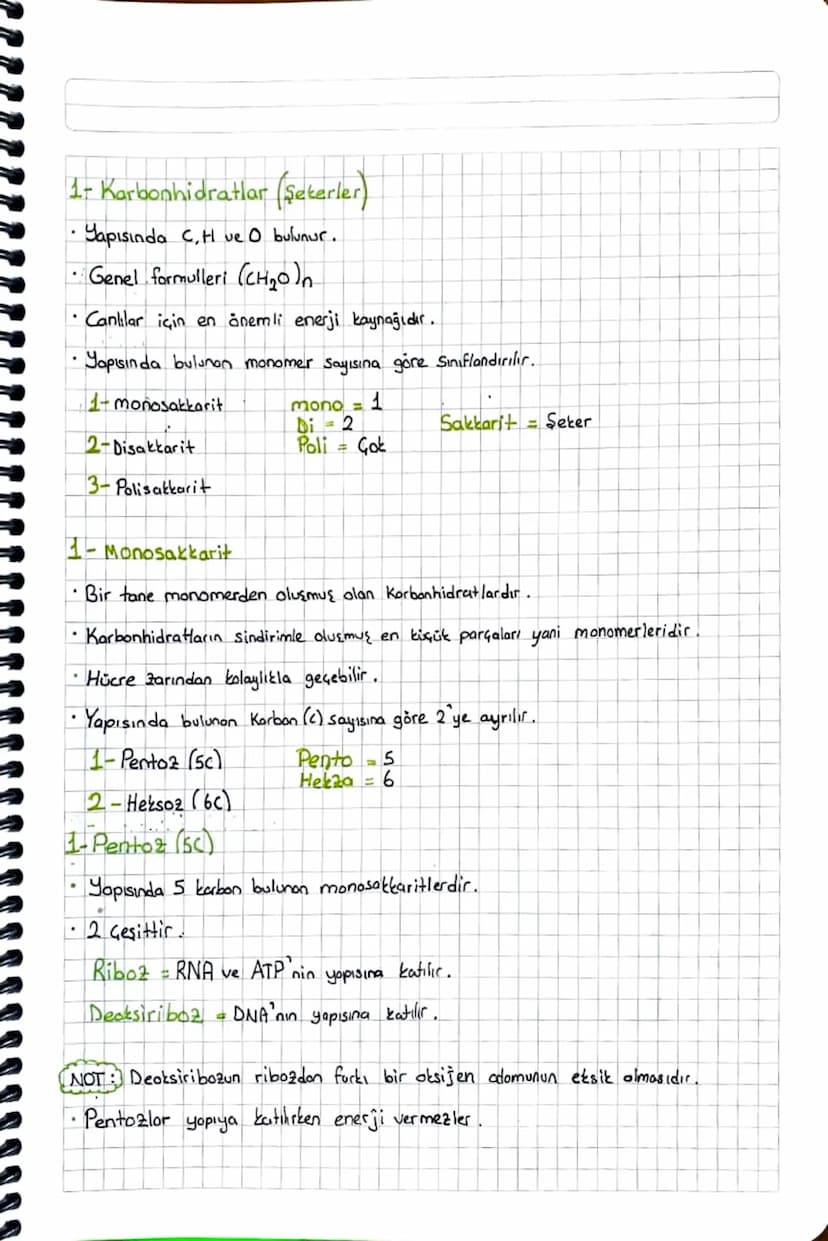 1- Karbonhidratlar (Şekerler)
· Yapısında C, H ve O bulunur.
· Genel formulleri (CH₂O)n
· Canlılar için en önemli enerji kaynağıdır.
· Yapısında bulunan monomer sayısına göre sınıflandırılır.
1- monosakkarit mono = 1
Di = 2 Sakkarit = Şeker
2- Disakkarit Poli = Çok
3- Polisakkarit
1- Monosakkarit
· Bir tane monomerden oluşmuş olan Karbonhidratlardır.
· Karbonhidratların sindirimle oluşmuş en küçük parçaları yani monomerleridir.
· Hücre zarından kolaylıkla geçebilir.
· Yapısında bulunan Karbon (C) sayısına göre 2'ye ayrılır.
1- Pentoz (5C) Pento = 5
Hekza = 6
2- Heksoz (6C)
1- Pentoz (5C)
· Yapısında 5 karbon bulunan monosakkaritlerdir.
· 2 Çeşittir.
Riboz = RNA ve ATP'nin yapısına katılır.
Deoksiriboz = DNA'nın yapısına katılır.
NOT: Deoksiribozun ribozdan farkı bir oksijen adomunun eksik olmasıdır.
· Pentozlar yapıya katılırken enerji vermezler.